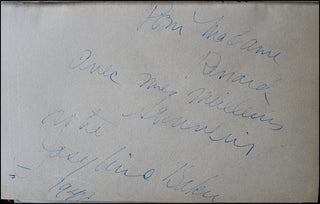 Pour Madame
Renard
avec mes meilleurs
souvenirs
votre
Josephine Baker